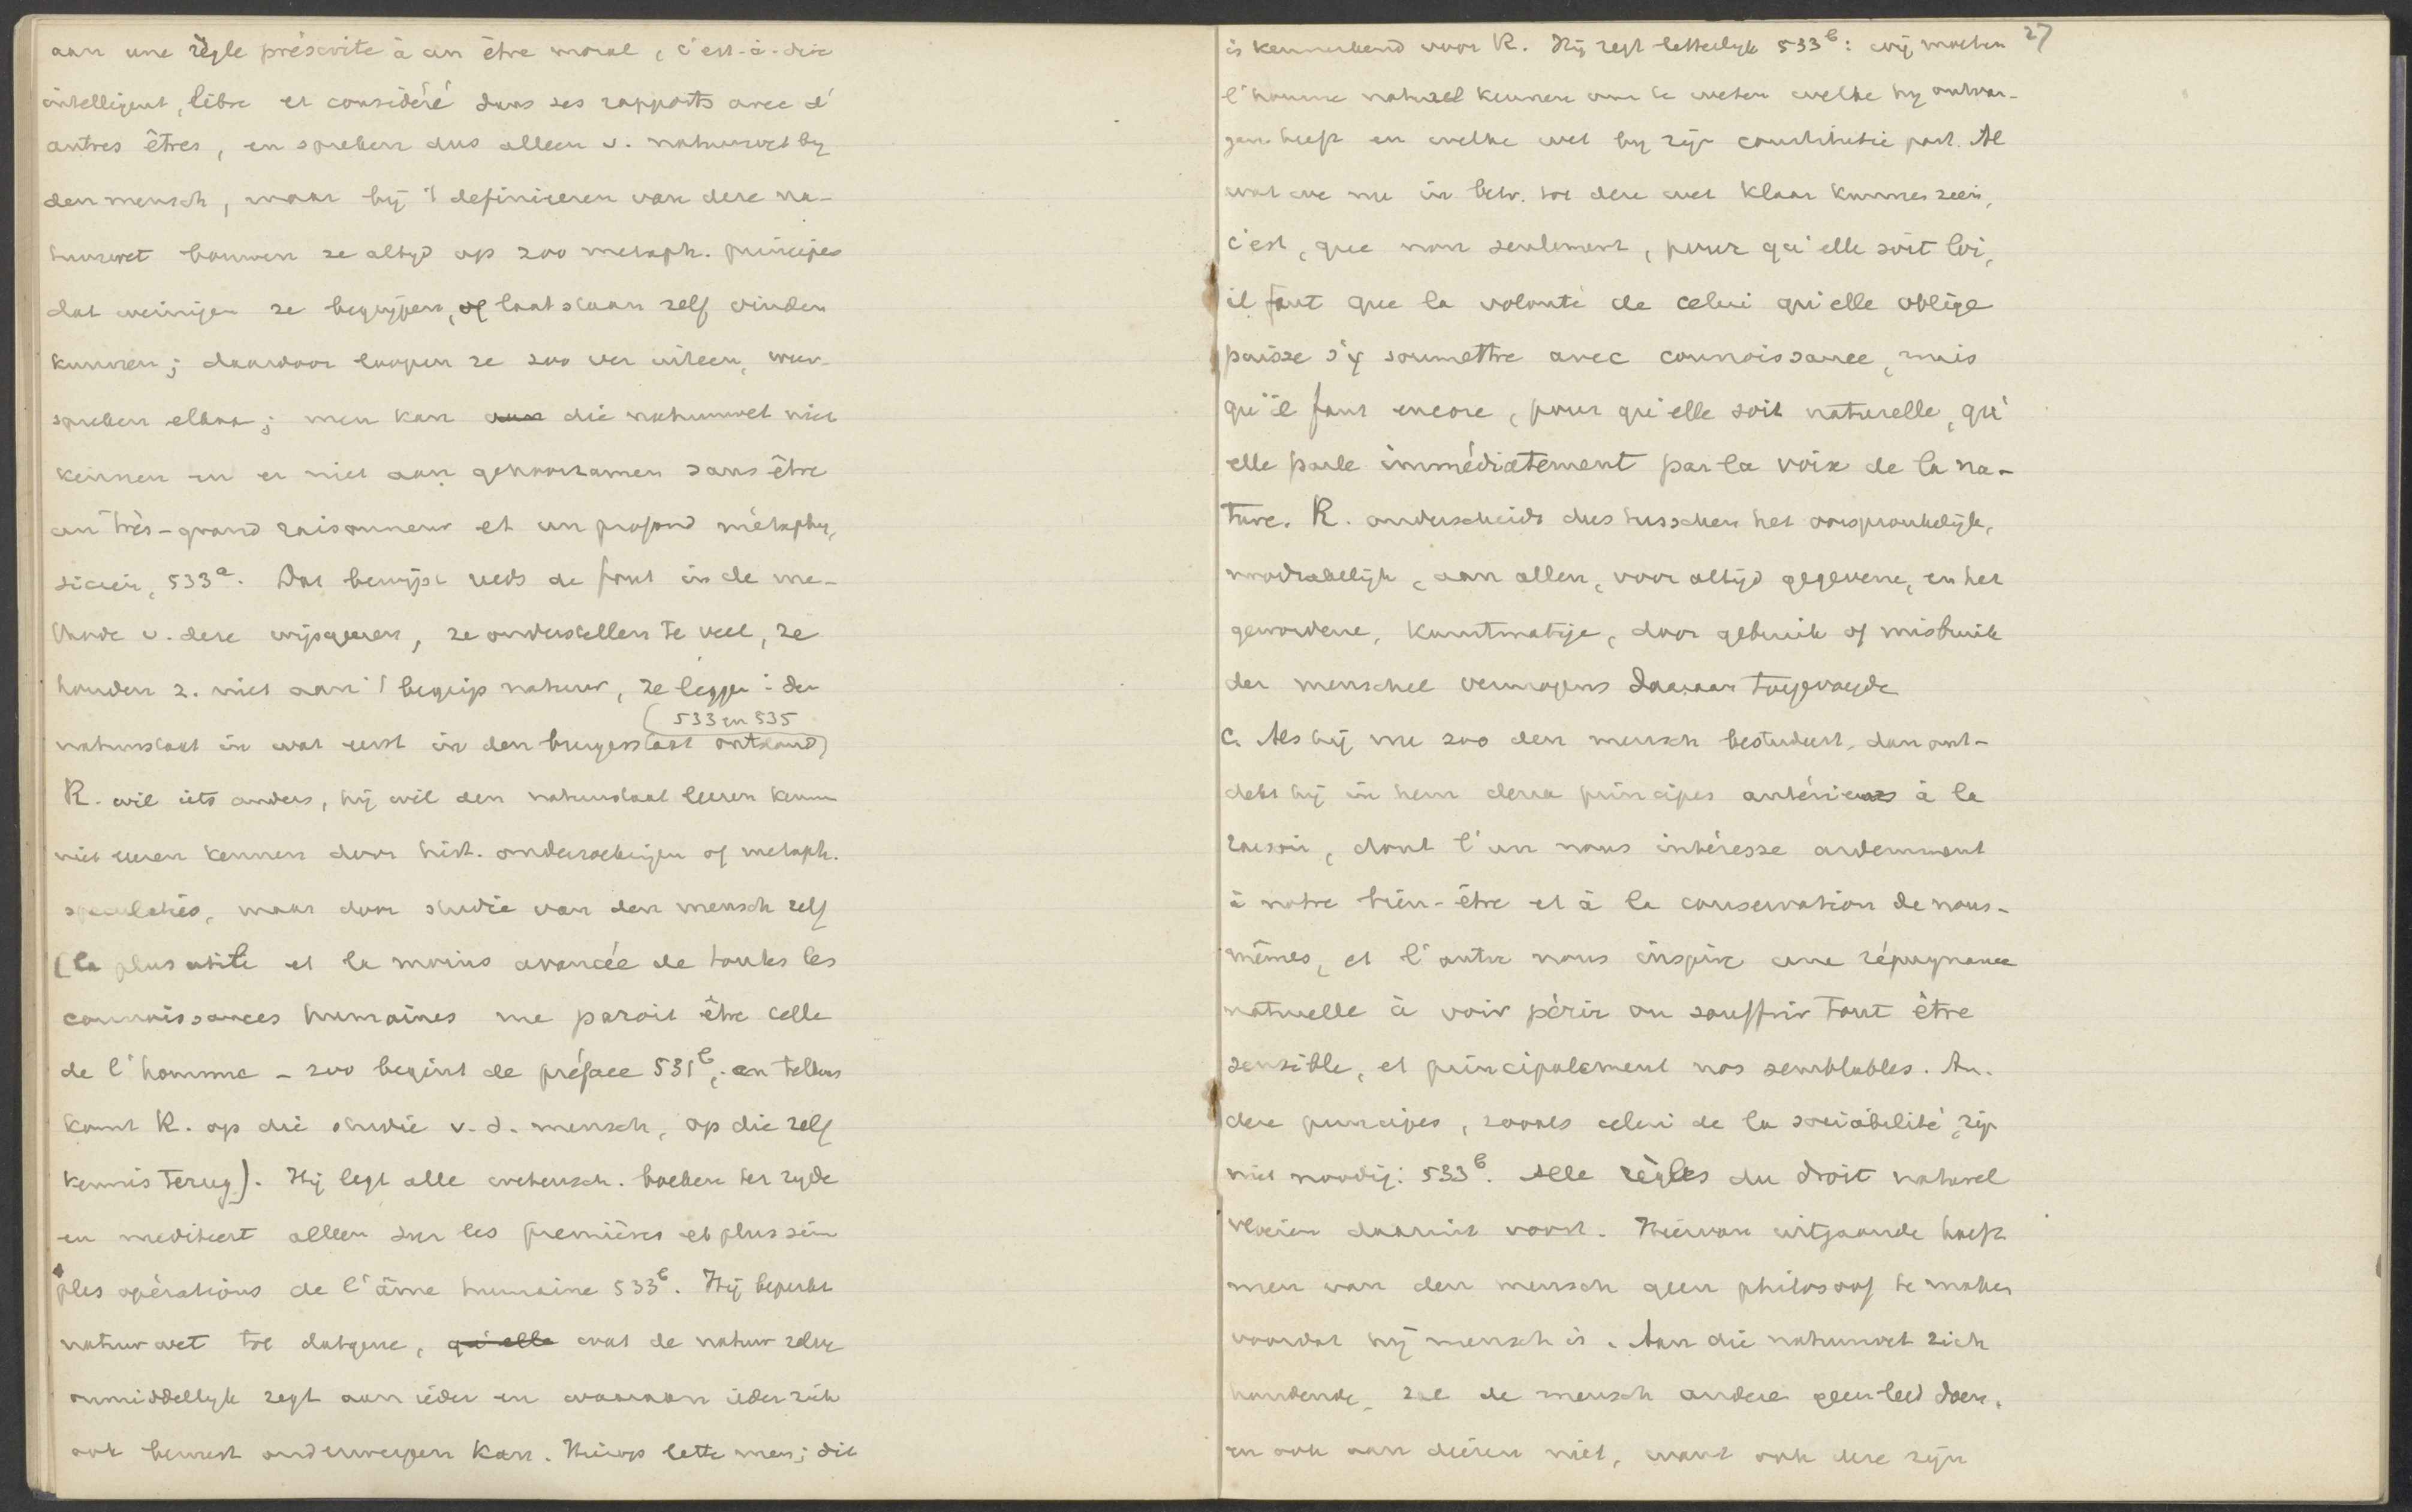 aan une règle prescrite à un être moral, c'est-à-dire
intelligent, libre et considéré dans ses rapports avec d'
autres êtres, en spreken dus alleen v. natuurwet by
den mensch, maar bij 't definieeren van deze na-
tuurwet bouwen ze altyd op zoo metaph. principes
dat weinigen ze begrijpen, of laat staan zelf vinden
kunnen; daardoor loopen ze zoo ver uiteen, weer-
spreken elkaar; men kan aan die natuurwet niet
kennen en er niet aan gehoorzamen sans être
un très-grand raisonneur et un profond métaphy-
sicien, 533a. Dat bewijst reeds de fout in de me-
thode v. deze wijsgeeren, ze onderstellen te veel, ze
houden z. niet aan 't begrip natuur, ze leggen in den
(533 en 535
natuurstaat in wat eerst in den burgerstaat ontstond)
R. wil iets anders, hij wil den natuurstaat leeren kennen
niet leeren kennen door hist. onderzoekingen of metaph.
speculaties, maar door studie van den mensch zelf
(la plus utile et la moins avancée de toutes les
connaissances humaines me paroit être celle
de l'homme - zoo begint de préface 531b, en telkens
komt R. op die studie v. d. mensch, op die zelf
kennis terug). Hij legt alle wetensch. boeken ter zyde
en mediteert alleen sur les premières et plus sim
ples opérations de l'âme humaine 533b. Hij beperkt
natuurwet tot datgene, qu'elle wat de natuur zelve
onmiddellyk zegt aan ieder en waaraan ieder zich
ook bewust onderwerpen kan. Hierop lette men; dit
27
is kenmerkend voor R. Hij zegt letterlyk 533b: wij moeten
l'homme naturel kennen om te weten welke wy ontvan-
gen heeft en welke wet by zijn constitutie past. Al
wat we nu in betr. tot deze wet klaar kunnen zien,
c'est, que non seulement, pour qu'elle soit loi,
il faut que la volonté de celui qu'elle oblige
puisse s'y soumettre avec connoissance, mais
qu'il faut encore, pour qu'elle soit naturelle, qu'
elle parle immédiatement par la voix de la na-
ture. R. onderscheidt dus tusschen het oorspronkelijk,
noodzakelijk, aan allen, voor altijd gegevene, en het
gewordene, kunstmatige, door gebruik of misbruik
der menschel. vermogens daaraan toegevoegde
C. Als hij nu zoo den mensch bestudeert, dan ont-
dekt hij in hem deux principes antérieurs à la
raison, dont l'un nous intéresse ardemment
à notre bien-être et à la conservation de nous-
mêmes, et l'autre nous inspire une répugnance
naturelle à voir périr ou souffrir tout être
sensible, et principalement nos semblables. An-
dere principes, zooals celui de la sociabilité, zijn
niet noodig: 533b. Alle règles du droit naturel
vloeien daaruit voort. Hiervan uitgaande hoeft
men van den mensch geen philosoof te maken
voordat hij mensch is. Aan die natuurwet zich
houdende, zal de mensch andere geen leed doen,
en ook aan dieren niet, want ook deze zijn